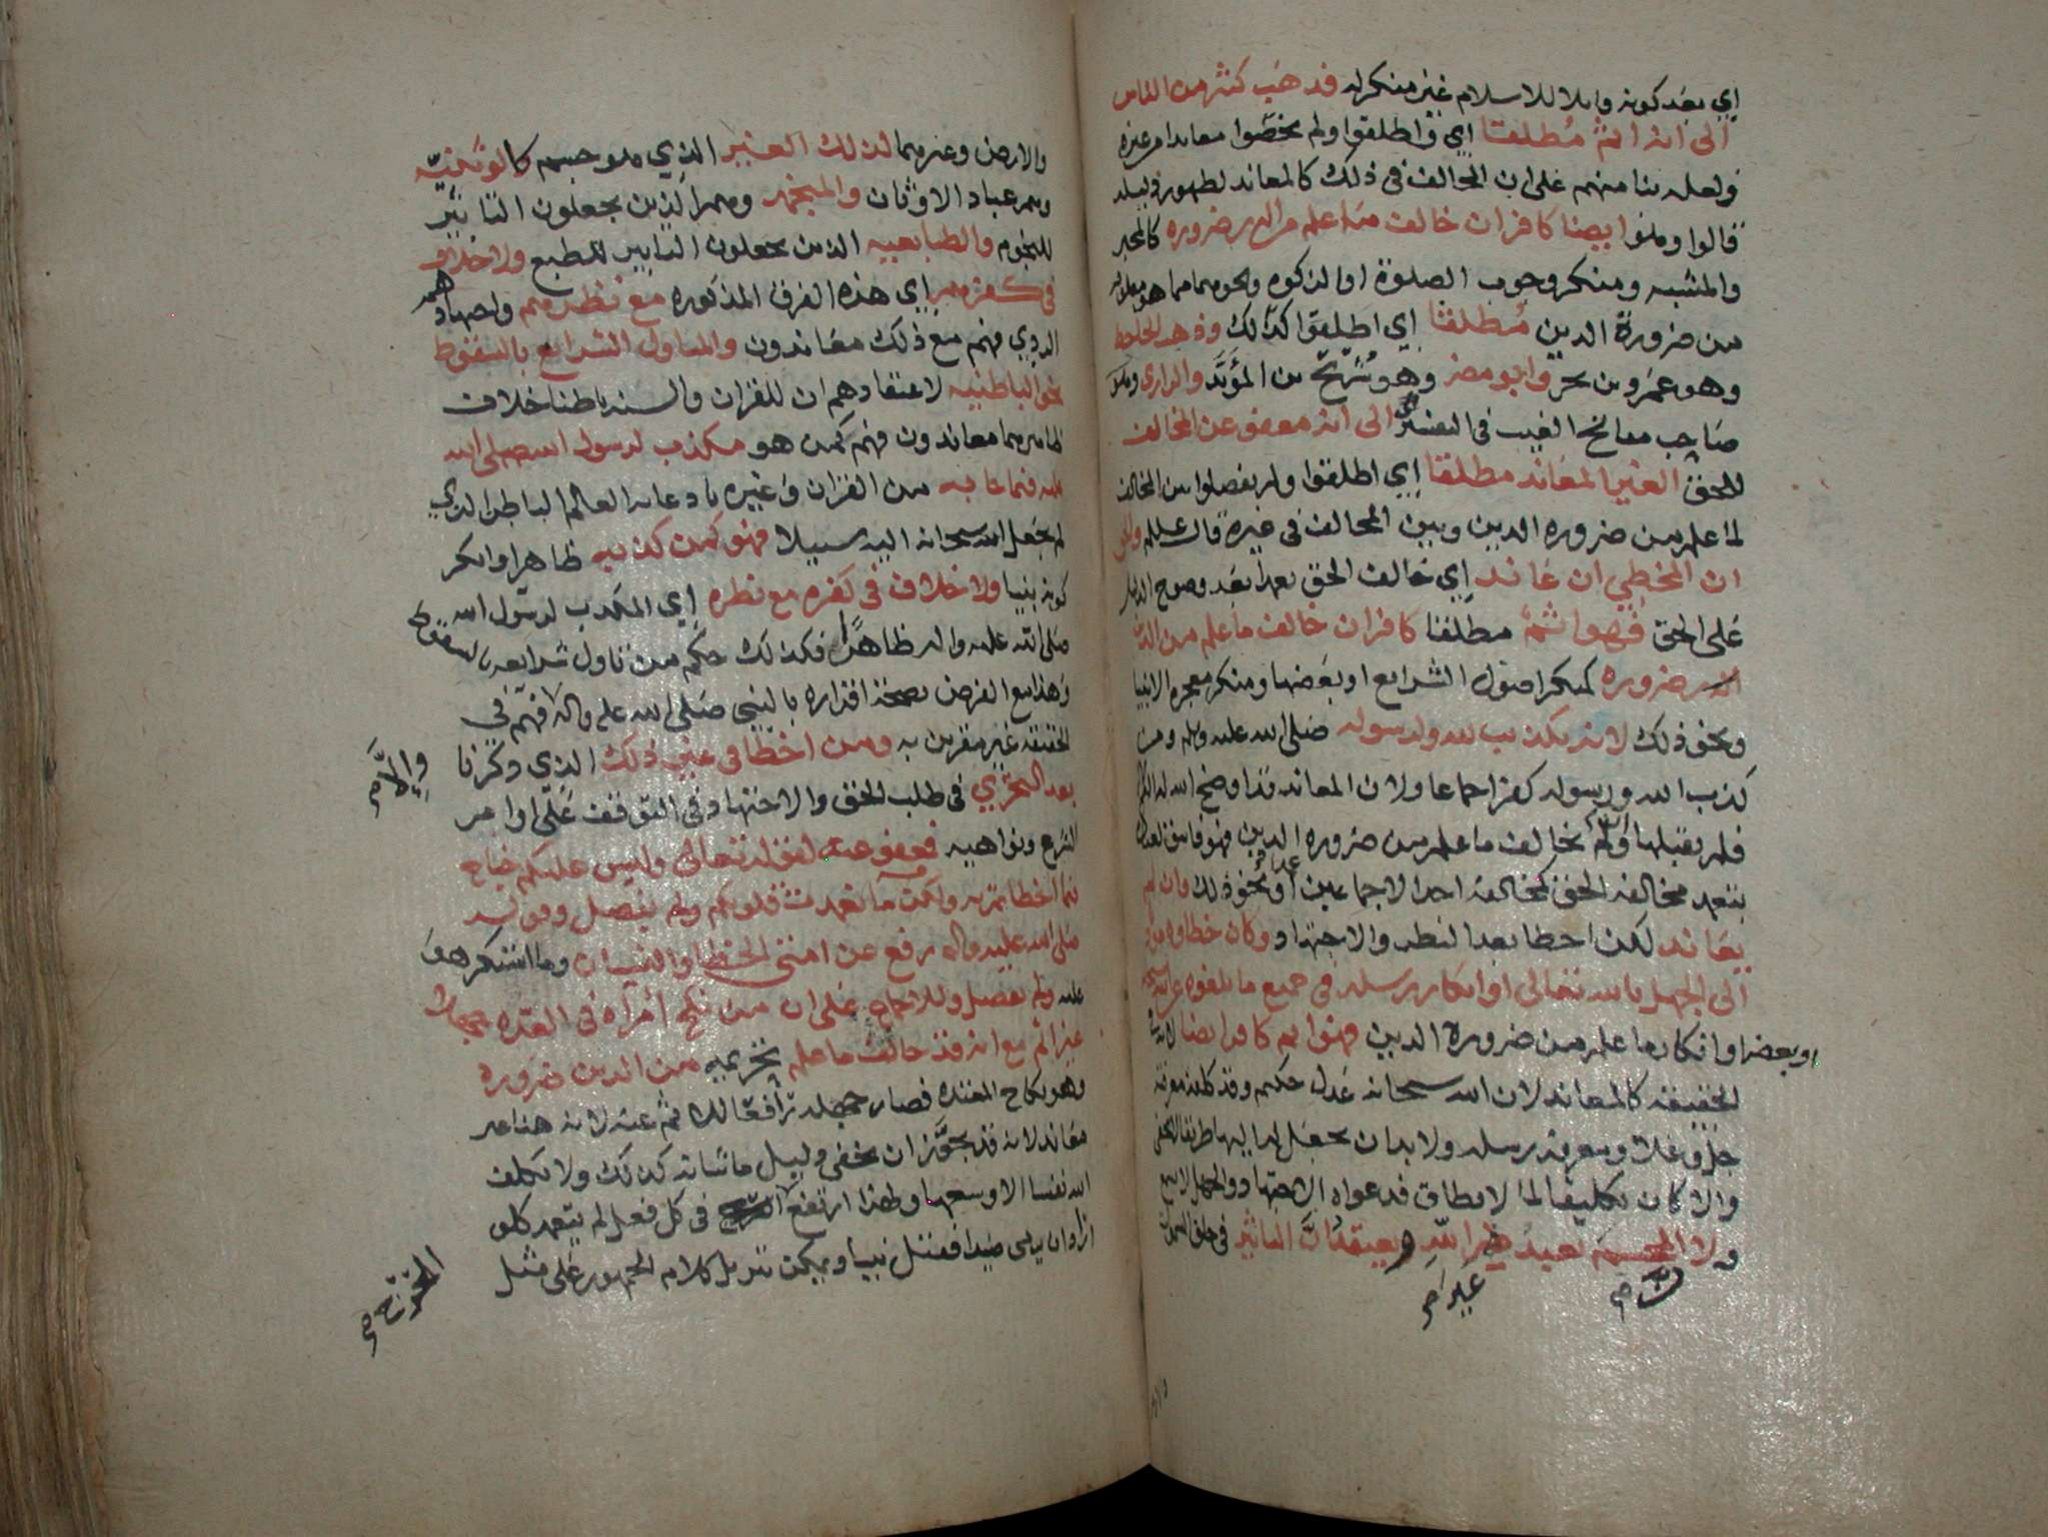 اي بعد كونه قابلا للاسلام غير منكر له فذهب كثير من الناس
الى انه اثم مُطلقا اي اطلقوا ولم يخصّوا معاندا من غيره
ولعله بنا منهم على ان المخالف في ذلك كالمعاند لظهور دليله
قالوا وهو ايضا كافر ان خالف ما علم من الدين ضرورة كالمجبر
والمشبه ومنكر وجوب الصلوة او الزكوة ونحوهما مما هو معلوم
من ضرورة الدين مُطلقا اي اطلقوا كذلك وذهب الجاحظ
وهو عمرو بن بحر وابو مضر وهو شُرَيح بن المؤيَّد والرازي وهو
صاحب مفاتح الغيب في التفسير الى انه معفو عن المخالف
للحق الغير المعاند مطلقا اي اطلقوا ولم يفصلوا بين المخالف
لما علم من ضرورة الدين وبين المخالف في غيره قال عليلم والحق
ان المخطي ان عاند اي خالف الحق بعد وضوح الدليل
على الحق فهو اثم مطلقا كافر ان خالف ما علم من الدين
ضرورة كمنكر اصول الشرايع او بعضها ومنكر معجزه الانبيا
ونحو ذلك لانه تكذيب لله ولرسوله صلى الله عليه واله ومن
كذب الله ورسوله كفر اجماعا ولان المعاند قد اوضح الله له
فلم يقبلها وان لم يخالف ما علم من ضرورة الدين فهو فاسق
بتعمد مخالفة الحق كمخالفة احد الاجماعين عمدا او نحو ذلك وان لم
يعاند لكن اخطا بعد النظر والاجتهاد وكان خطاوه مؤدي
الى الجهل بالله تعالى او انكار رسله في جميع ما بلغوه عن الله سبحانه
او بعضه او انكار ما علم من ضرورة الدين فهو اثم كافر ايضا لانه في
الحقيقة كالمعاند لان الله سبحانه عدل حكيم وقد كلفه معرفته
جل وعلا ومعرفة رسله ولا بد ان يجعل له اليها طريقا
والا كان تكليفا لما لا يطاق فدعواه الاجتهاد والجهل لا يسمع
ولان المجسم يعبد غير الله ويعتقد ان التاثير في خلق السموات
والارض وغيرهما لذلك الغير الذي هو جسم كالوثنيّه
وهم عباد الاوثان والمنجمه وهم الذين يجعلون التاثير
للنجوم والطبايعيه الذين يجعلون التاثير للطبع ولا خلاف
في كفرهم اي هذه الفرق المذكوره مع نظرهم واجتهادهم
المردي فهم مع ذلك معاندون والمتاول الشرايع بالسقوط
نحو الباطنيه لاعتقادهم ان للقران والسنه باطنا خلاف
ظاهرهما معاندون فهم كمن هو مكذب لرسول الله صلى الله
عليه فيما جا به من القران وغيره بادعائه العالم الباطن الذي
لم يجعل الله سبحانه اليه سبيلا فهو كمن كذبه ظاهرا وانكر
كونه نبيا ولا خلاف في كفره مع نظره اي المكذب لرسول الله
صلى الله عليه واله ظاهرا فكذلك حكم من تاول شرايعه بالسقوط
وهذا مع الفرض بصحة اقراره بالنبي صلى الله عليه واله والا فهم في
الحقيقة غير مقرين به ومن اخطا في غير ذلك الذي ذكرنا
بعد التحري في طلب الحق والاجتهاد وفي التوقف على اوامر
الشرع ونواهيه فمعفو عنه لقوله تعالى وليس عليكم جناح
فيما اخطاتم به ولكن ما تعمدت قلوبكم ولم يفصل وقوله
صلى الله عليه واله رفع عن امتي الخطا والنسيان وما استكرهوا
عليه ولم يفصل وللاجماع على ان من نكح امراه في العده جهلا
غير اثم مع انه قد خالف ما علم تحريمه من الدين ضرورة
وهو نكاح المعتده فصار جهله رافعا للاثم عنه لانه هنا غير
معاند لانه قد يجوّز ان يخفى دليل ما شانه كذلك ولا يكلف
الله نفسا الا وسعها ولهذا ارتفع الحرج في كل فعل لم يتعمد كلو
اراد ان يرمي صيدا فقتل نبيا ويمكن تنزيل كلام الجمهور على مثل